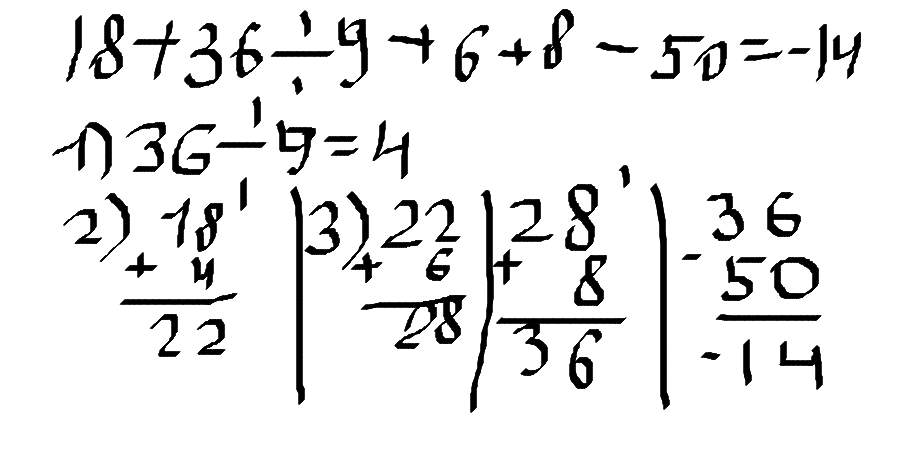 18+36÷9+6+8-50=-14
1) 36÷9=4
2) 18 + 4 22
3) 22 + 6 28
28 + 8 36
36 - 50 -14